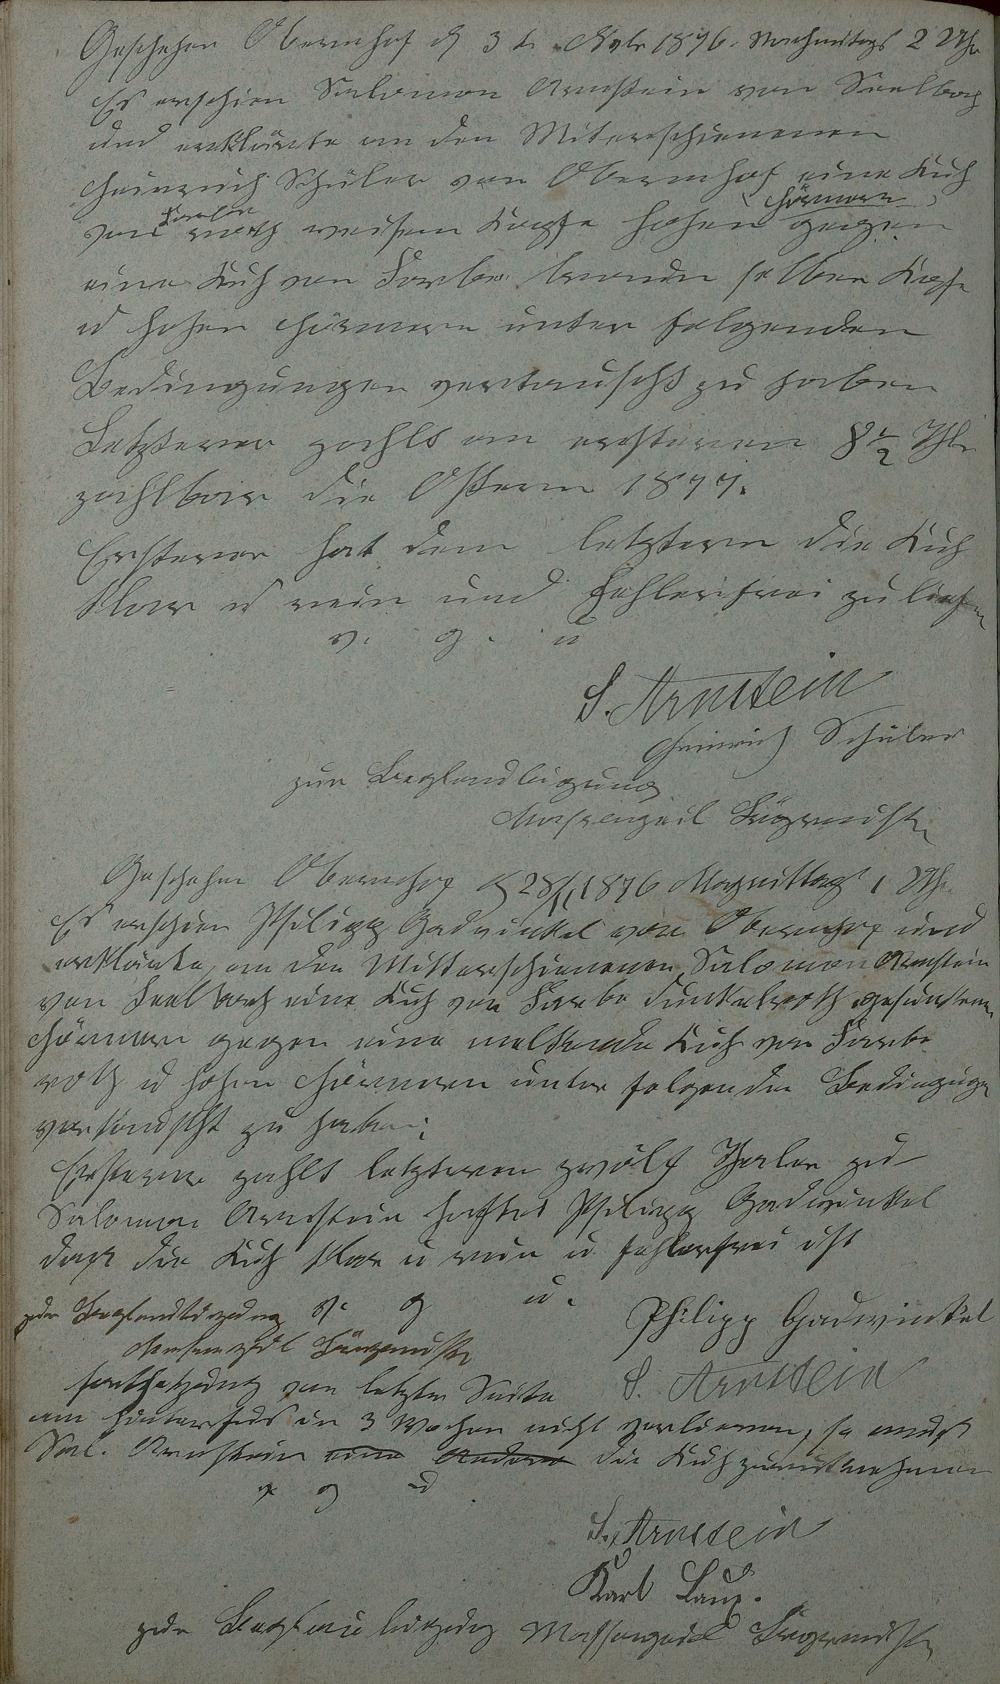 Geschehen Obernhof d 3t. Novbr 1876. Nachmittags 2 Uhr
Es erschien Salomon Arnstein von Seelbach
und erklärte an den Miterschienenen
Heinrich Schüler von Obernhof eine Kuh
Hörnern
von Farbe roth weisem Kopfe hohen gegen
eine Kuh von Farbe selben Kopfe
u hohen Hörnern unter folgenden
Bedingungen vertauscht zu haben
Letzterer zahlt an ersteren 8 1/2 Thlr
zahlbar die Ostern 1877.
Ersterer hat dem letztern die Kuh
klar u rein und fehlerfrei zu liefern
v. g. u
S. Arnstein
Heinrich Schüler
zur Beglaubigung
Massengeil Bürgermstr
Geschehn Obernhof d 28/11 1876 Mittag 1 Uhr
Es erschien Philipp Gadwinkel von Obernhof und
erklärte, an den Mitterschienenen Salomon Arnstein
von Seelbach eine Kuh von Farbe dunkelroth
Hörnern gegen eine melkende Kuh von Farbe
roth u hohen Hörnern unter folgenden Bedingungen
vertauscht zu haben:
Ersterer zahlt letzteren zwölf Thaler
Salomon Arnstein haftet Philipp Gadwinkel
daß die Kuh klar u rein u fehlerfrei ist
zur Beglaubigung v. g u.
Philipp Gadwinkel
Massengeil Bürgermstr
S. Arnstein
Fortsetzung von letzter Seite
am in 3 Wochen nicht verlieren, so muß
Sal. Arnstein eine Andere die Kuh zurücknehmen
v g u
S. Arnstein
Karl Laux.
zur Beglaubigung Massengeil Bürgermstr